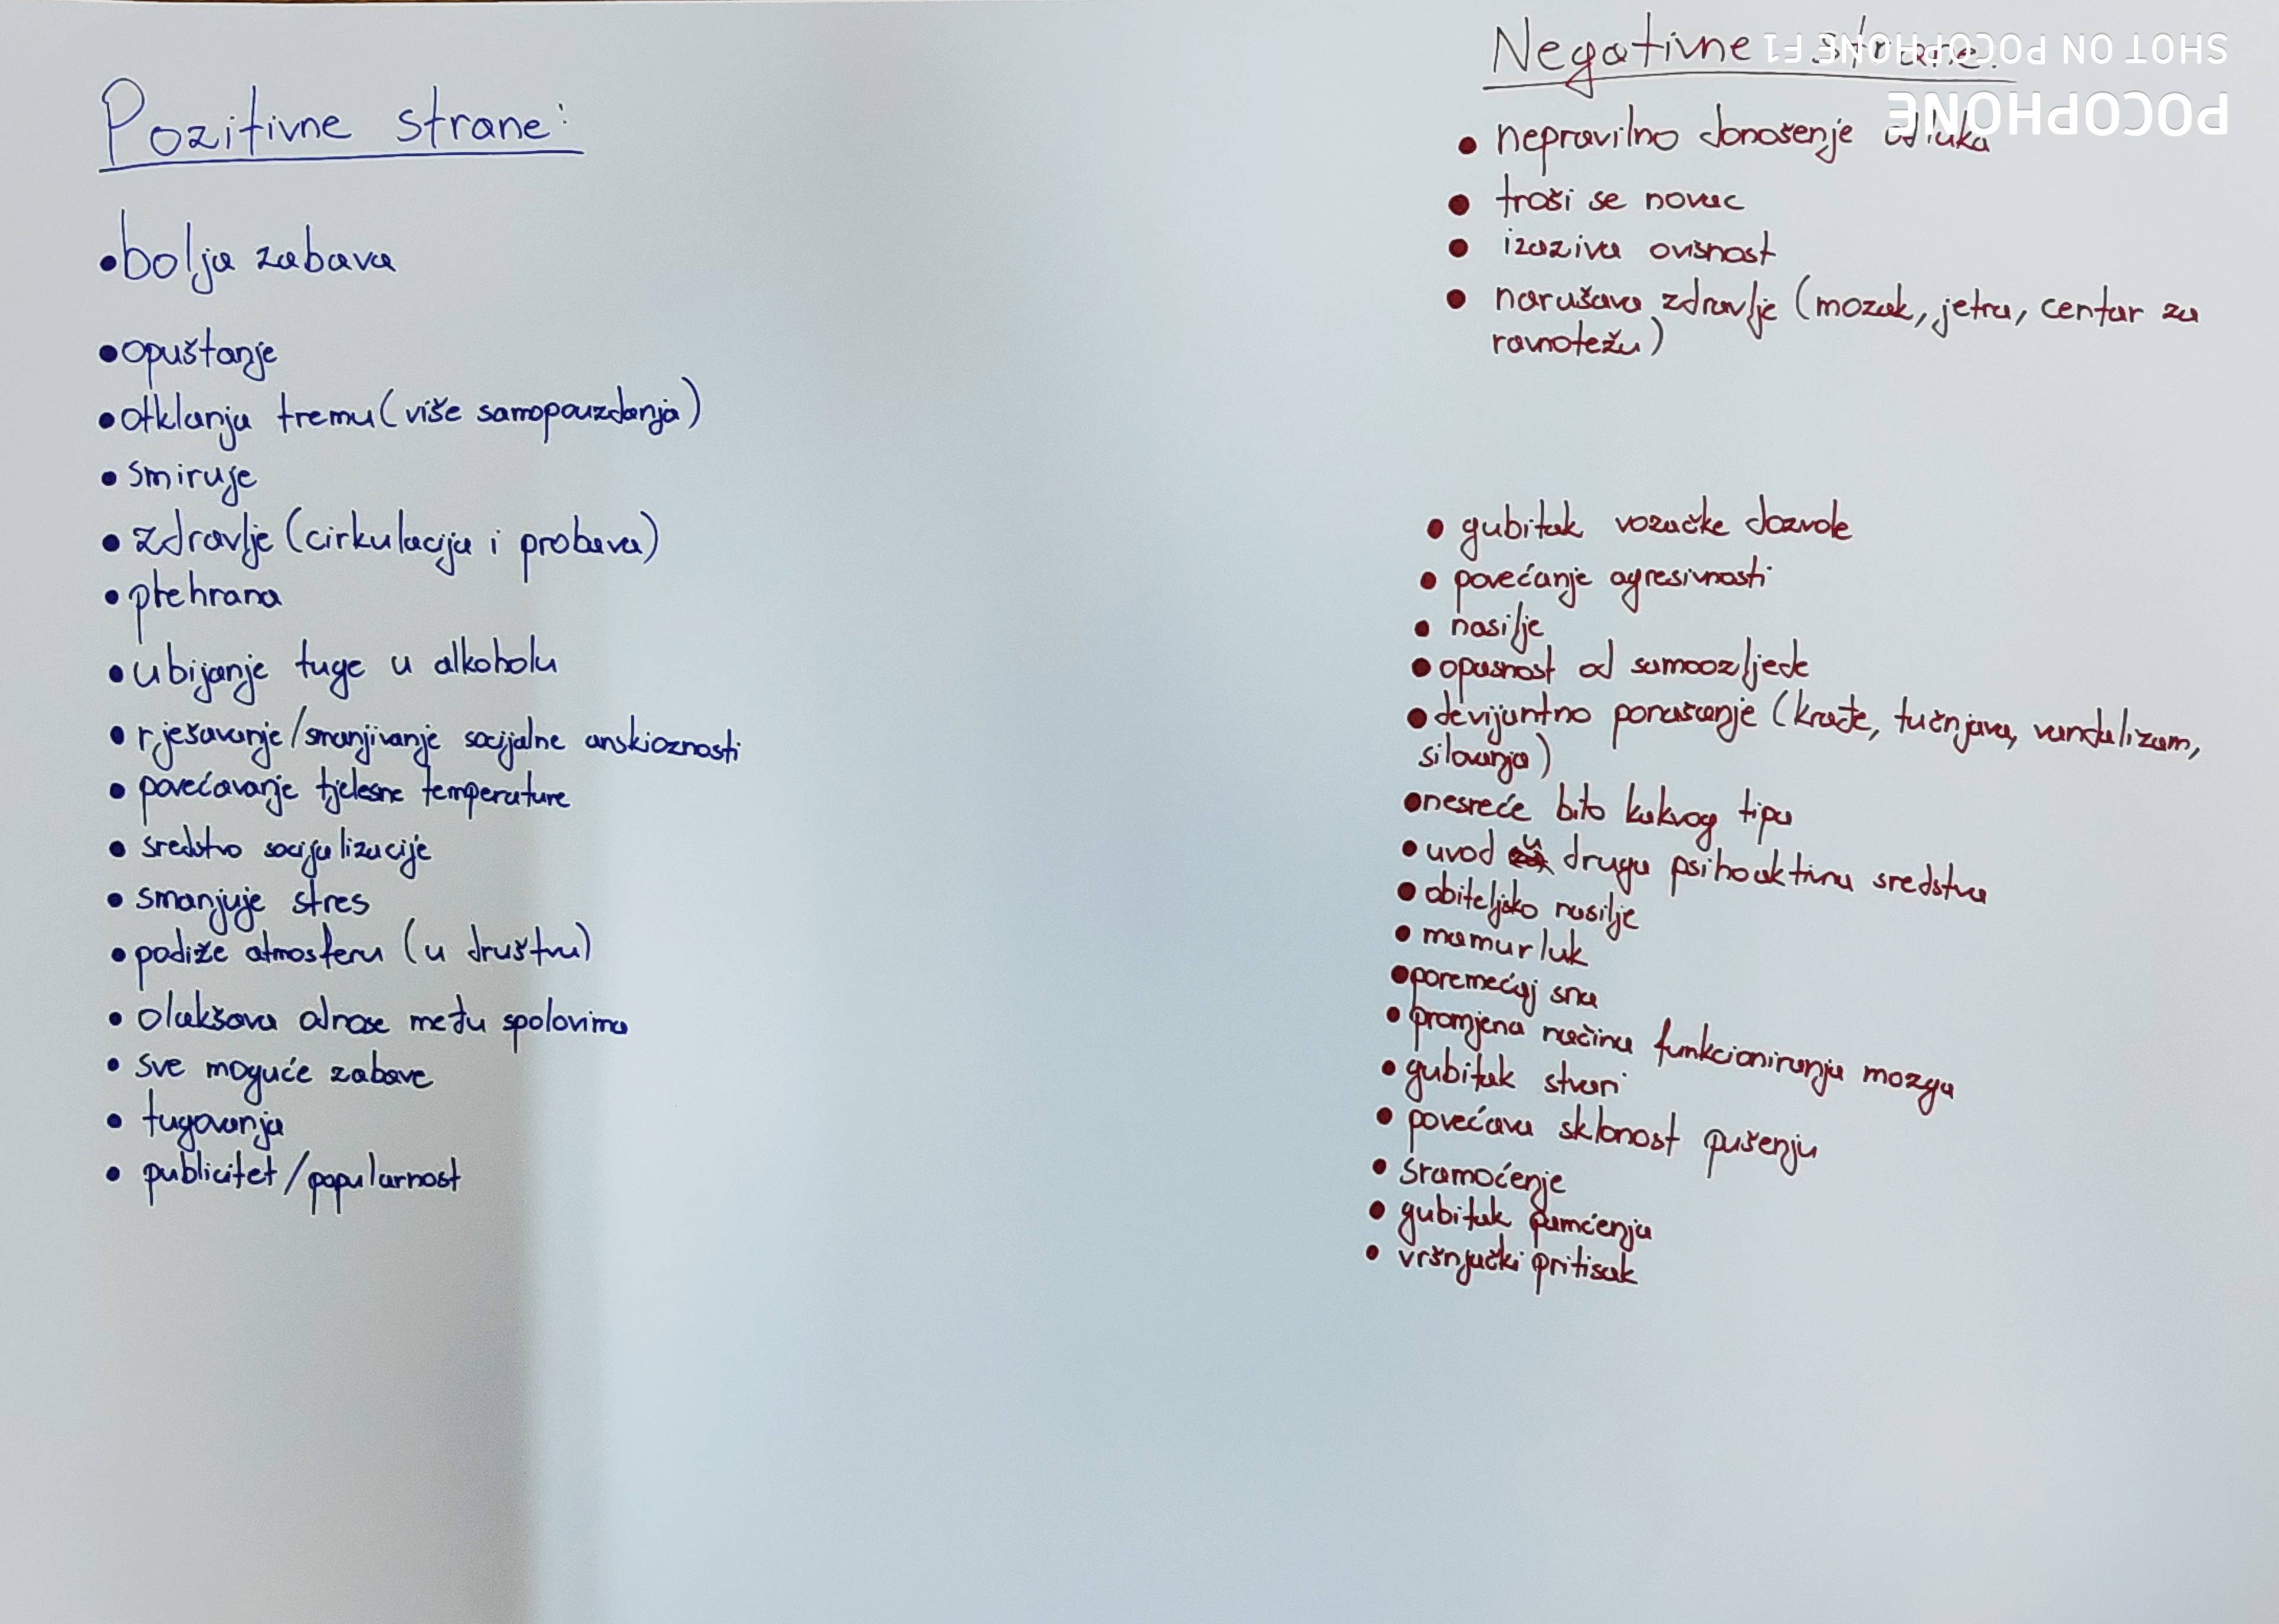 Pozitivne strane:
•bolja zabava
•opuštanje
•otklanja tremu (više samopouzdanja)
•smiruje
•zdravlje (cirkulacija i probava)
•prehrana
•ubijanje tuge u alkoholu
•rješavanje/smanjivanje socijalne anskioznosti
•povećavanje tjelesne temperature
•sredstvo socijalizacije
•smanjuje stres
•podiže atmosferu (u društvu)
•olakšava odnose među spolovima
•sve moguće zabave
•tugovanja
•publicitet/popularnost
Negativne strane:
•nepravilno donošenje odluka
•troši se novac
•izaziva ovisnost
•narušava zdravlje (mozak, jetra, centar za
ravnotežu)
•gubitak vozačke dozvole
•povećanje agresivnosti
•nasilje
•opasnost od samoozljede
•devijantno ponašanje (krađe, tučnjava, vandalizam,
silovanja)
•nesreće bito kakvog tipa
•uvod u druga psihoaktivna sredstva
•obiteljsko nasilje
•mamurluk
•poremećaj sna
•promjena načina funkcioniranja mozga
•gubitak stvari
•povećava sklonost pušenju
•sramoćenje
•gubitak pamćenja
•vršnjački pritisak
SHOT ON POCOPHONE F1
POCOPHONE